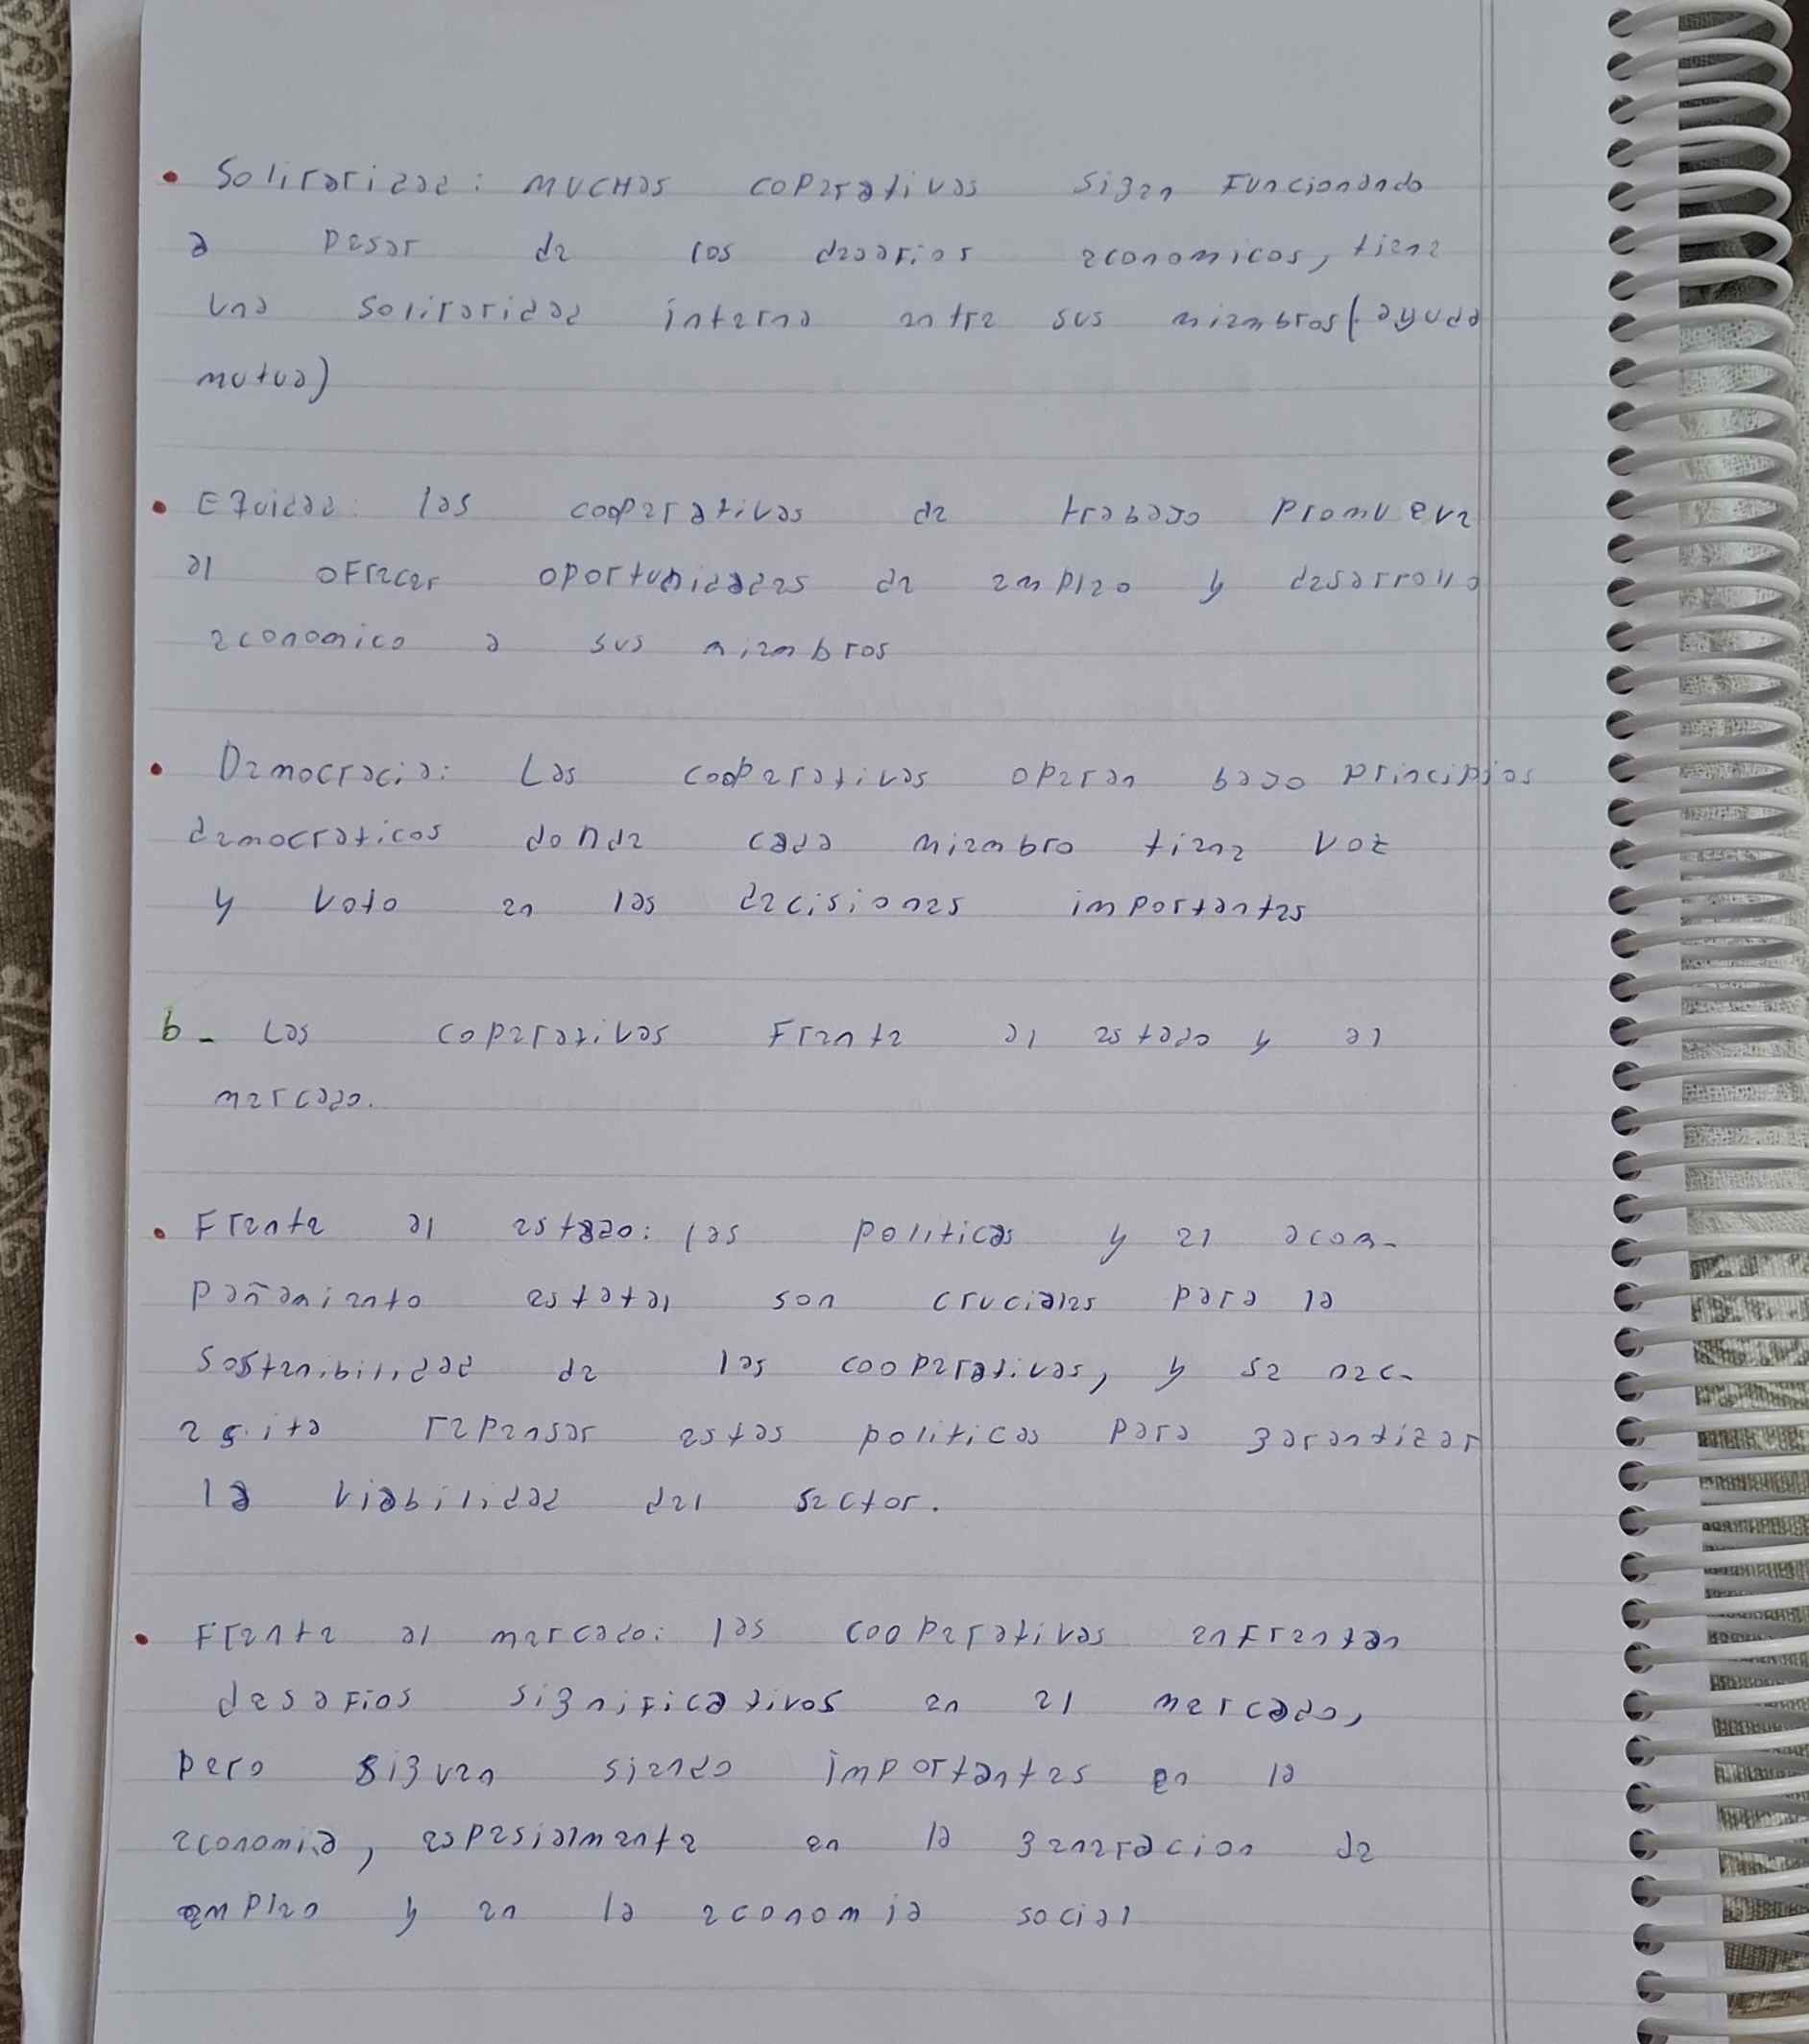 • Soliraridad: MUCHAS coperativas sigen Funcionando
a pesar de los desafios economicos, tiene
una soliraridad interna entre sus miembros (ayuda
mutua)
• Equidad: las cooperativas de trabajo promueve
al oFrecer oportunidades de empleo y desarrollo
economico a sus miembros
• Democracia: Las cooperativas operan bajo principios
democraticos donde cada miembro tiene voz
y voto en las decisiones importantes
b- Las coperativas Frente al estado y al
mercado.
• Frente al estado: las politicas y el acom-
pañamiento estatal son cruciales para la
sostenibilidad de las cooperativas, y se nec-
esita repensar estas politicas para garantizar
la viabilidad del sector.
• Frente al mercado: las cooperativas enFrentan
desaFios significativos en el mercado,
pero siguen siendo importantes en la
economia, espesialmente en la generacion de
empleo y en la economia social